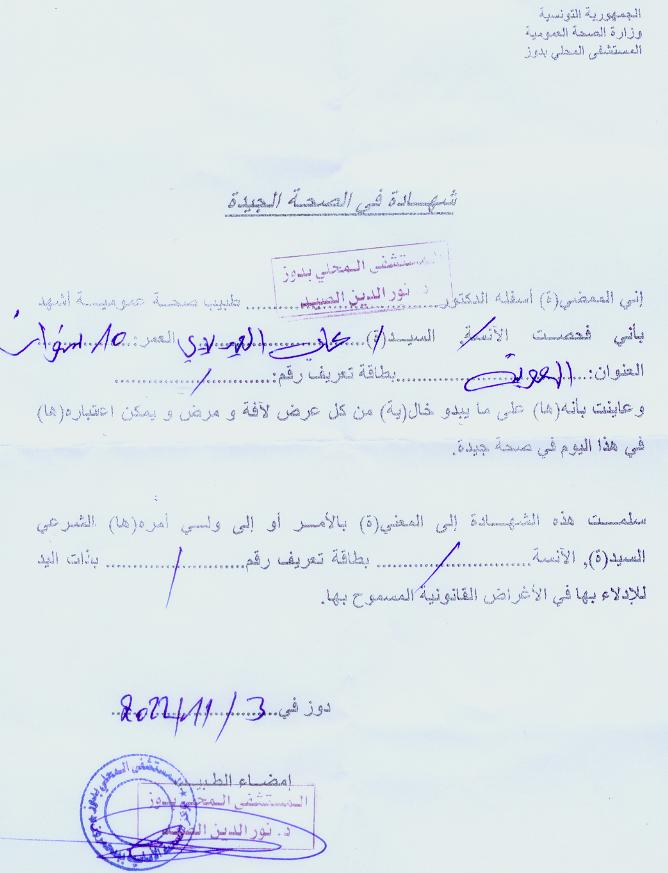 الجمهورية التونسية
وزارة الصحة العمومية
المستشفى المحلي بدوز
شهادة في الصحة الجيدة
المستشفى المحلي بدوز
د. نور الدين الصيد
إني الممضي(ة) أسفله الدكتور................ طبيب صحة عمومية أشهد
بأني فحصت الآنسة, السيد(ة)... علي ... العمر: 10 سنوات
العنوان:................بطاقة تعريف رقم:................
و عاينت بأنه(ها) على ما يبدو خال(ية) من كل عرض لآفة و مرض و يمكن اعتباره(ها)
في هذا اليوم في صحة جيدة.
سلمت هذه الشهادة إلى المعني(ة) بالأمر أو إلى ولي أمره(ها) الشرعي
السيد(ة), الآنسة................ بطاقة تعريف رقم................ بذات اليد
للإدلاء بها في الأغراض القانونية المسموح بها.
دوز في 3/11/2022
إمضاء الطبيب
المستشفى المحلي بدوز
د. نور الدين الصيد
المستشفى المحلي بدوز